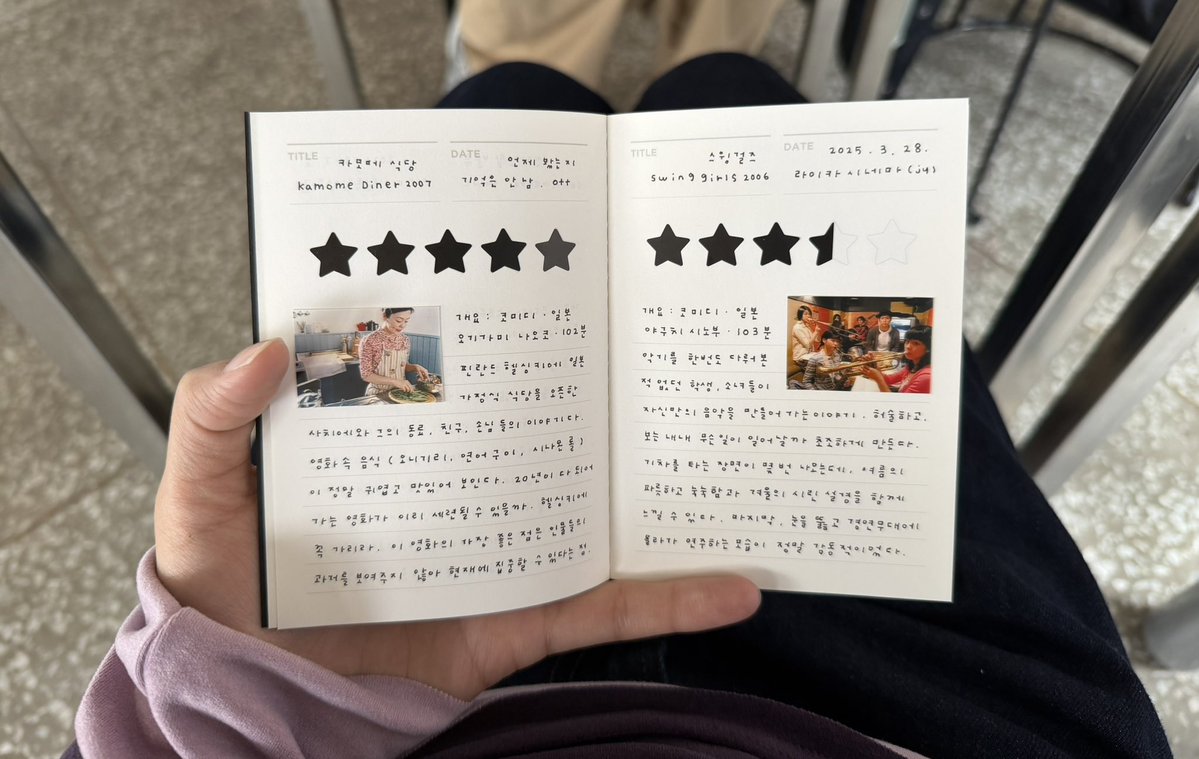 TITLE
카모메 식당
Kamome Diner 2007
DATE
언제 봤는지
기억은 안 남. OTT
개요 : 코미디 · 일본
오기가미 나오코 · 102분
핀란드 헬싱키에서 일본
가정식 식당을 오픈한
사치에와 그의 동료, 친구, 손님 들의 이야기다.
영화 속 음식 (오니기리, 연어구이, 시나몬 롤)
이 정말 귀엽고 맛있어 보인다. 20년이 다 되어
가는 영화가 이리 세련될 수 있을까. 헬싱키에
꼭 가리라. 이 영화의 가장 좋은 점은 인물들의
과거를 보여주지 않아 현재에 집중할 수 있다는 점.
TITLE
스윙걸즈
Swing girls 2006
DATE
2025. 3. 28.
라이카 시네마 (jy)
개요 : 코미디 · 일본
야구치 시노부 · 103분
악기를 한번도 다뤄본
적 없던 학생, 소녀들이
자신만의 음악을 만들어가는 이야기. 허술하고,
보는 내내 무슨일이 일어날까 초조하게 만든다.
기차를 타는 장면이 몇번 나왔는데, 여름의
파릇하고 눅눅함과 겨울의 시린 설경을 함께
느낄 수 있다. 마지막, 눈을 뚫고 경연무대에
올라가 연주하는 모습이 정말 감동적이었다.